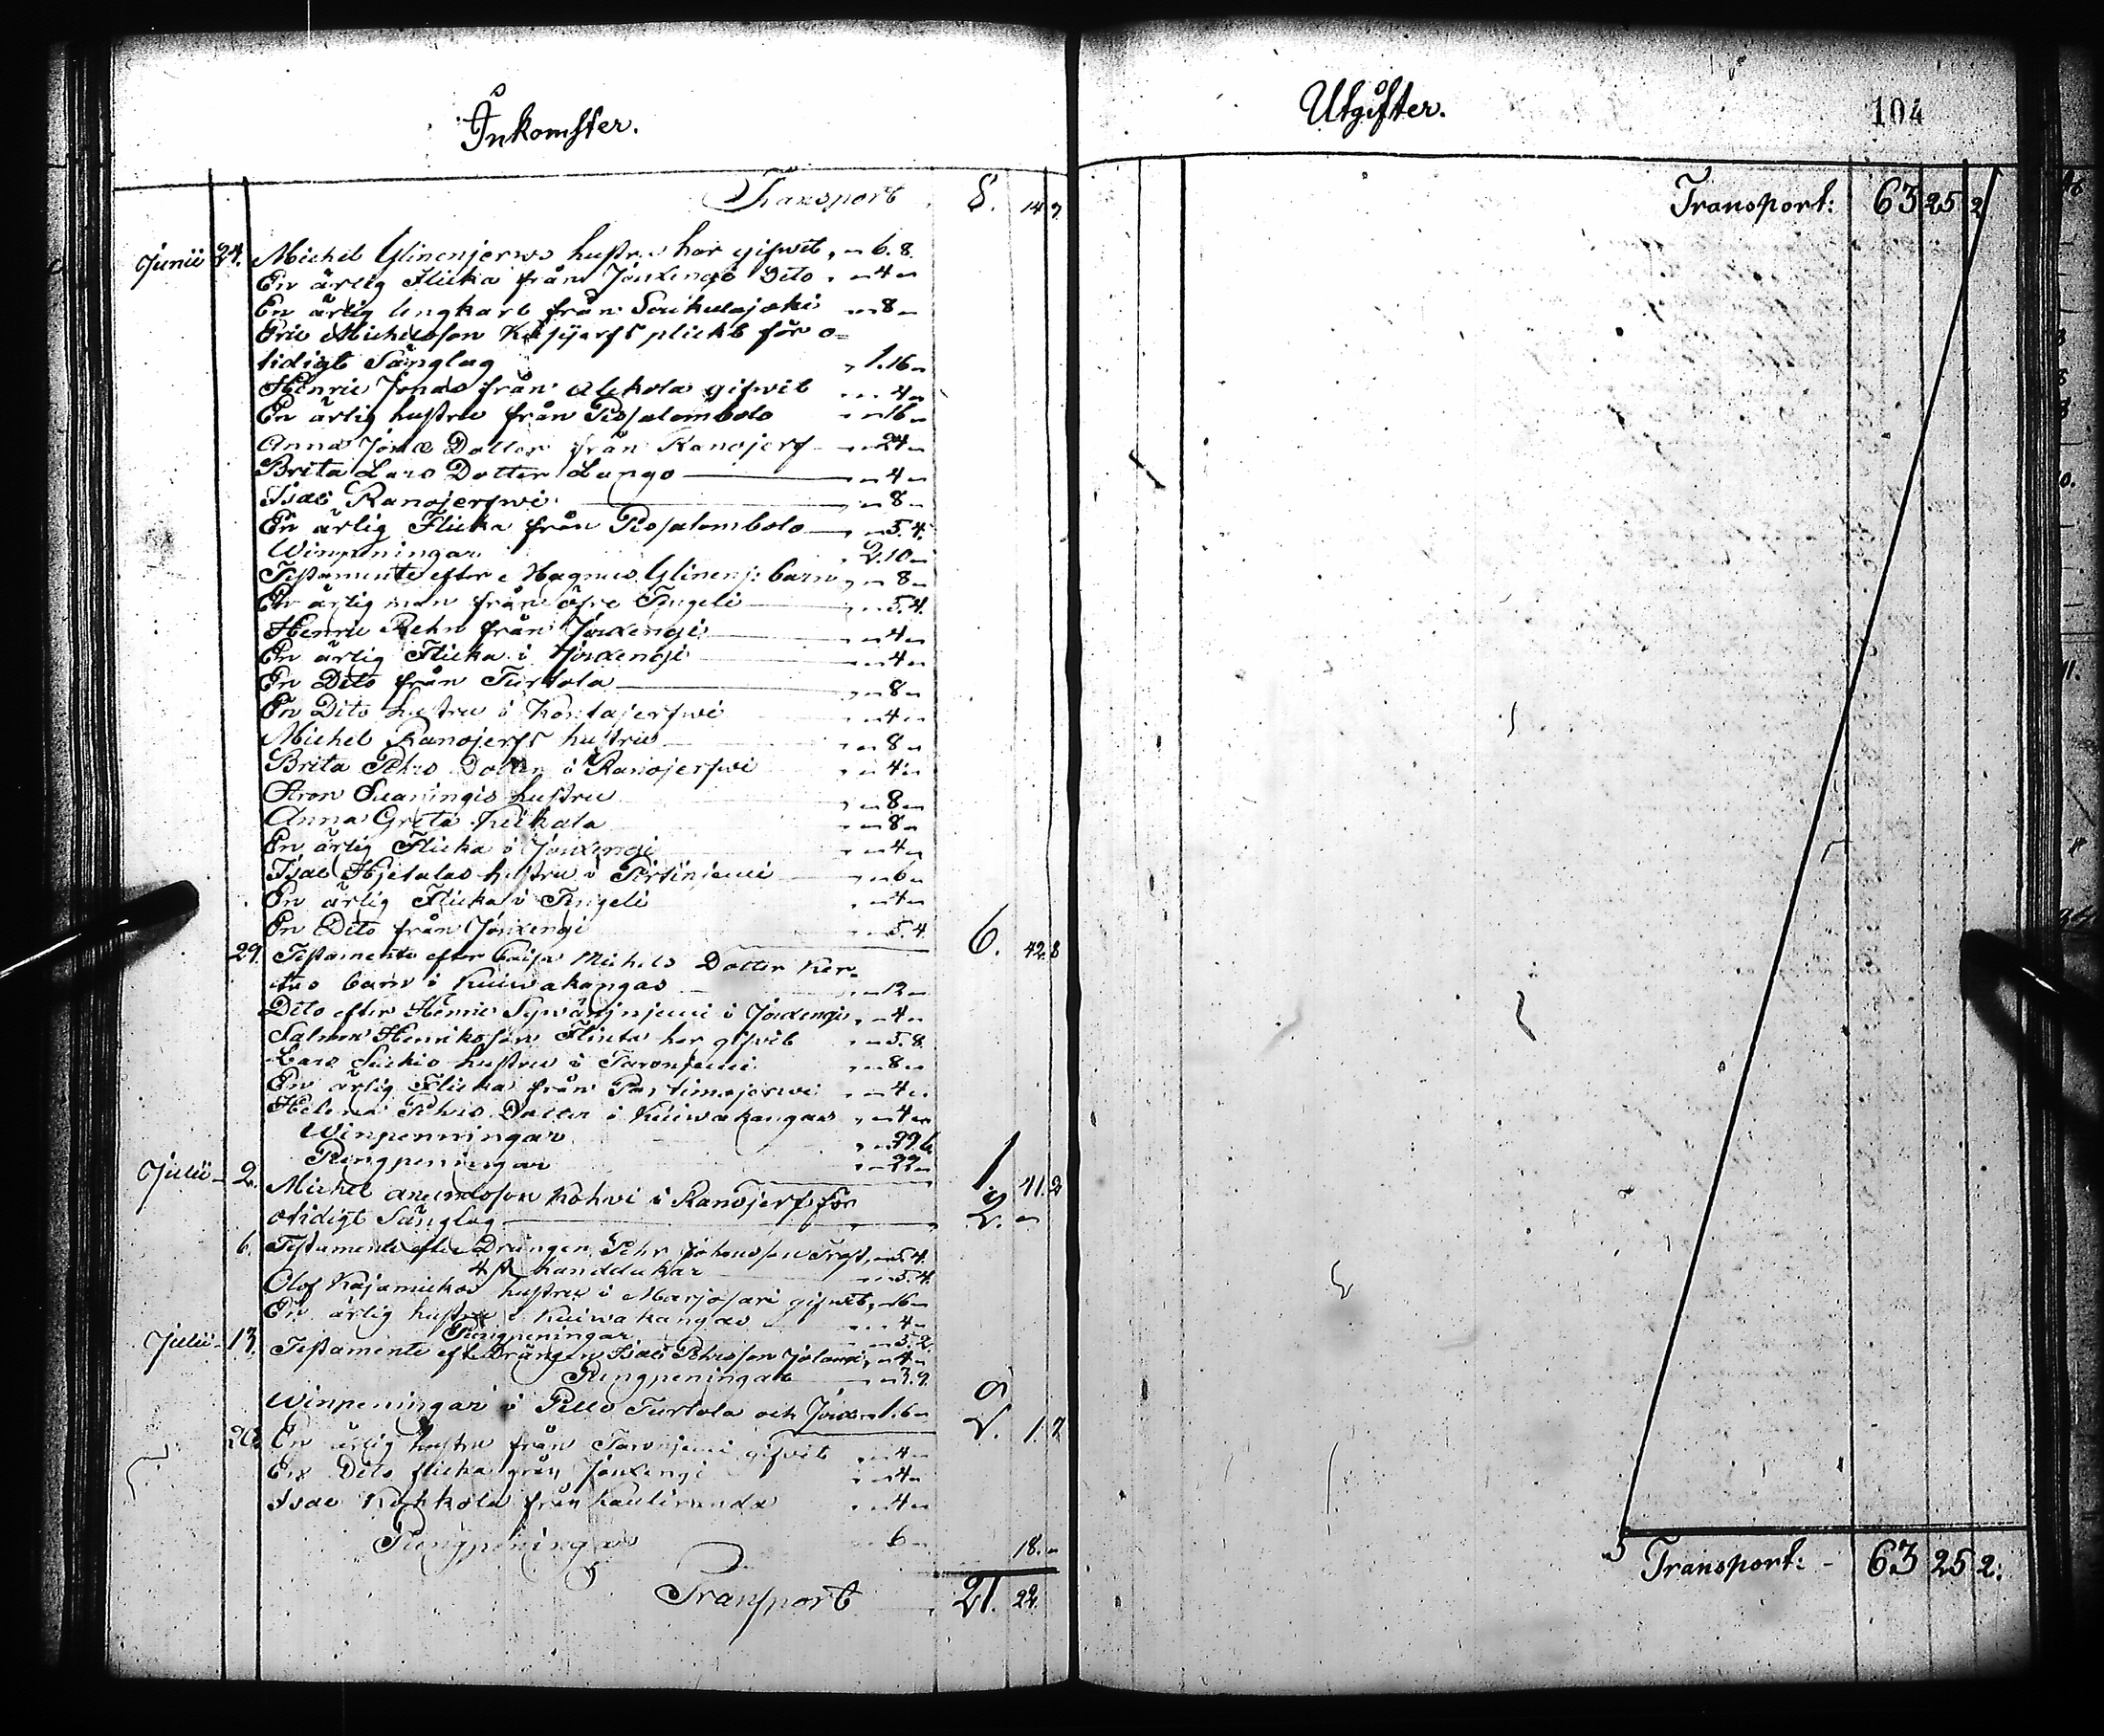 Inkomster.
Transport 8. 14.7
Junii 24. Michel Glinenjerws hustru har gifwit „ - 6.8.
En ärlig Flicka från Jouxengi Dito „ - 4 -
En ärlig Ungkarl från - 8 -
Eric Michelsson plickt för o=
tidigt Sänglag „ 1.16 -
Henric Jonas från Alkola gifwit - 4 -
En ärlig hustru från Piosalombolo - 16 -
Anna Jons Dotter från Ranojerf - 24 -
Brita Lars Dotter Lango - 4 -
Isac Ranojerfwi - 8 -
En ärlig Flicka från Piosalombolo - 5.4.
Winpeningar 2.10 -
Testamente efter Magnus Glinenj: barn - 8 -
En ärlig man från öfre Tengeli - 5.4.
Henric Rehn från Jouxengi - 4 -
En ärlig Flicka i Jouxengi - 4 -
En Dito från Turtola - 8 -
En Dito hustru i Kontajerfwi - 4 -
Michel Ranojerfs hustru - 8 -
Brita Pehrs Dotter i Ranojerfwi - 4 -
Aron Suaningis hustru - 8 -
Anna Greta - 8 -
En ärlig Flicka i Jouxengi - 4 -
Isac Hjetalas hustru i Pirtinjemi - 6 -
En ärlig Flicka i Tengeli - 4 -
En Dito från Jouxengi - 5.4. 6. 42.8
29. Testamente efter Caisa Michels Dotter Ker=
tus barn i Kuiwakangas - 12 -
Dito efter Henric i Jouxengi - 4 -
Salmon Henriksson Flinta har gifwit - 5.8.
Lars hustru i Taronjemi - 8 -
En ärlig Flicka från Portimojerwi - 4 -
Helena Pehrs Dotter i Kuiwakangas - 4 -
Winpenningar
Pungpeningar 1. 41.2
Julii - 2. Michel Anundsson Kohwi i Ranojerf för
otidigt Sänglag 2. -
6. Testamente efter Drängen Pehr Johansson - 5.4.
4 st handdukar - 5.4.
Olof hustru i Marjosari gifwit, - 16 -
En ärlig hustru i Kuiwakangas - 4 -
Pungpeningar - 5.2.
Julii - 13. Testamente eft. Drängen Isac Pehrsson - 4 -
Pungpeningar - 3.9.
Winpeningar i Pello Turtola och Jouxen 1.6 - 2. 1.7
20. En ärlig hustru från Taronjemi gifwit - 4 -
En Dito flicka från Jouxengi - 4 -
Isac Kohkola från Kauliranda - 4 -
Pungpeningar - 6 - 18. -
Transport 21. 22.
Utgifter.
104
Transport: 63 25 2
Transport: - 63 25 2.